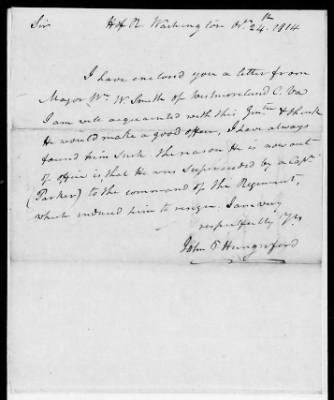 Sir H of R Washington Octr 24th 1814
I have enclosed you a letter from
Major Wm W Smith of Westmoreland C. Va
I am well acquainted with this Gentn & think
He would make a good officer, I have always
found him such The reason He is now out
of office is, that He was superseded by a Capt
(Parker) to the command of the Regiment,
which induced him to resign. I am very
respectfully Yrs
John P Hungerford